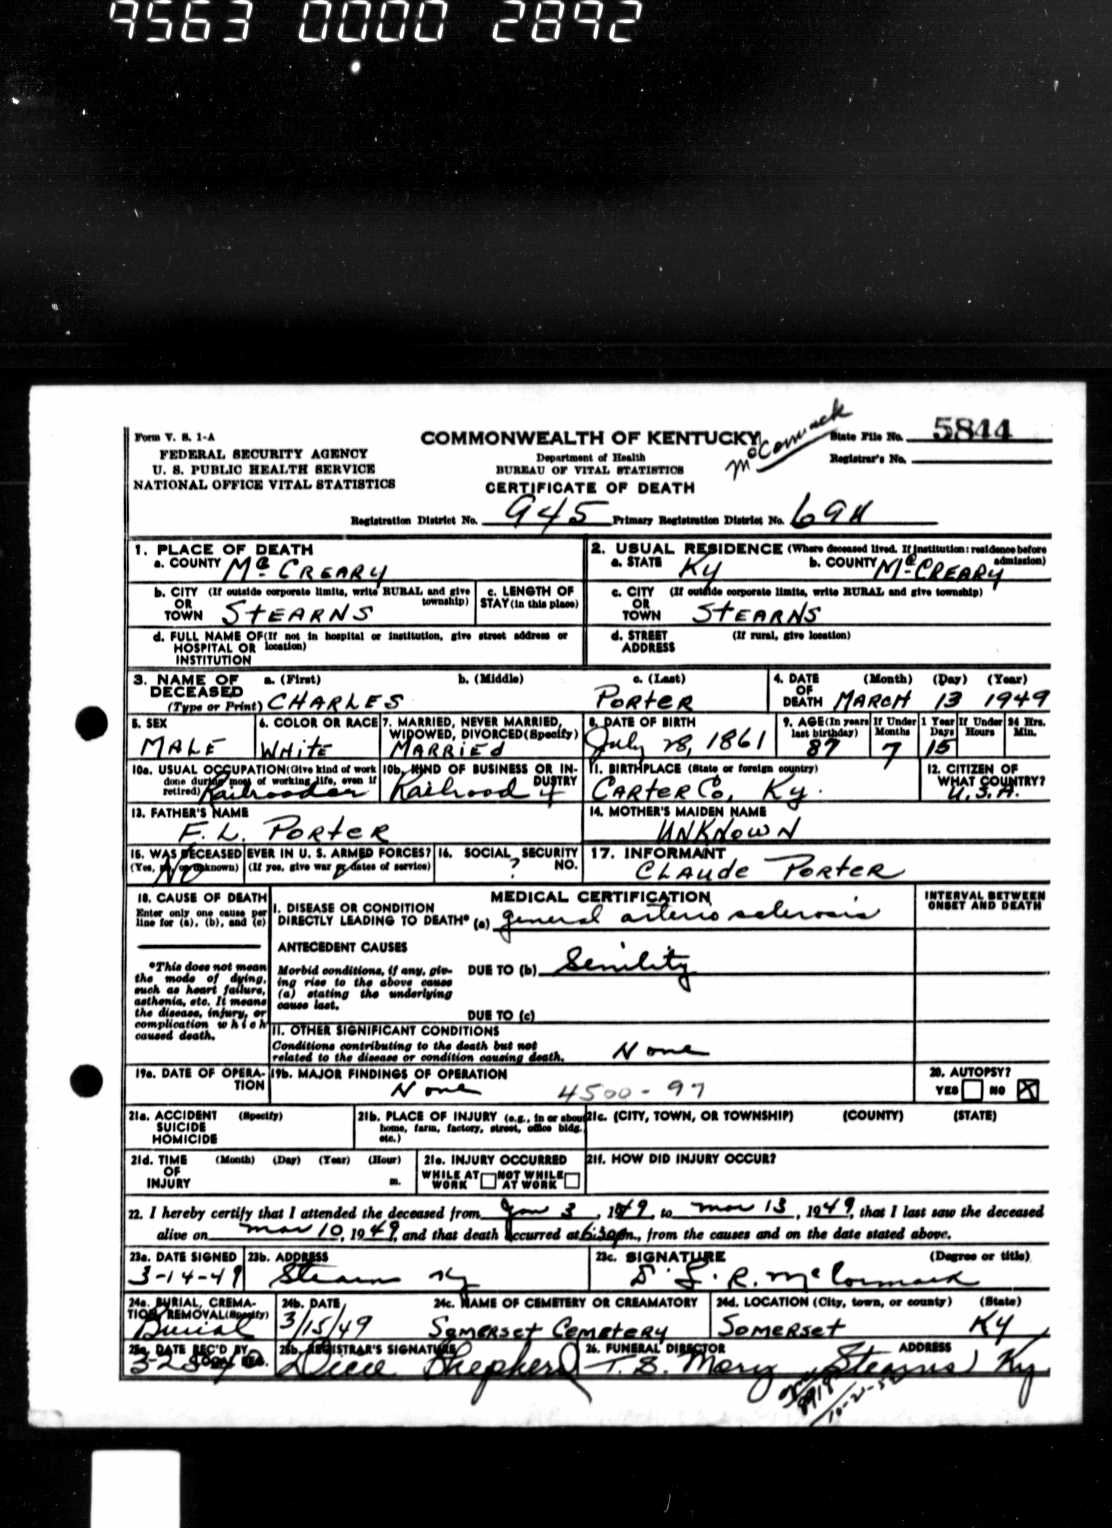 9563 0000 2892
Form V. S. 1-A
FEDERAL SECURITY AGENCY
U. S. PUBLIC HEALTH SERVICE
NATIONAL OFFICE VITAL STATISTICS
COMMONWEALTH OF KENTUCKY
Department of Health
BUREAU OF VITAL STATISTICS
CERTIFICATE OF DEATH
McCormack
State File No. 5844
Registrar's No.
Registration District No. 945 Primary Registration District No. 69H
1. PLACE OF DEATH
a. COUNTY McCREARY
2. USUAL RESIDENCE (Where deceased lived. If institution: residence before admission)
a. STATE Ky b. COUNTY McCREARY
b. CITY (If outside corporate limits, write RURAL and give township)
OR
TOWN STEARNS
c. LENGTH OF STAY (in this place)
c. CITY (If outside corporate limits, write RURAL and give township)
OR
TOWN STEARNS
d. FULL NAME OF (If not in hospital or institution, give street address or location)
HOSPITAL OR
INSTITUTION
d. STREET (If rural, give location)
ADDRESS
3. NAME OF DECEASED a. (First) b. (Middle) c. (Last)
(Type or Print) CHARLES PORTER
4. DATE OF DEATH (Month) (Day) (Year)
MARCH 13 1949
5. SEX
MALE
6. COLOR OR RACE
WHITE
7. MARRIED, NEVER MARRIED, WIDOWED, DIVORCED (Specify)
MARRIED
8. DATE OF BIRTH
July 28, 1861
9. AGE (In years last birthday) If Under 1 Year Months Days If Under 24 Hrs. Hours Min.
87 7 15
10a. USUAL OCCUPATION (Give kind of work done during most of working life, even if retired) Railroader
10b. KIND OF BUSINESS OR INDUSTRY
Railroad
11. BIRTHPLACE (State or foreign country)
CARTER Co, Ky.
12. CITIZEN OF WHAT COUNTRY?
U.S.A.
13. FATHER'S NAME
F. L. PORTER
14. MOTHER'S MAIDEN NAME
UNKNOWN
15. WAS DECEASED EVER IN U. S. ARMED FORCES?
(Yes, no, or unknown) (If yes, give war or dates of service)
No
16. SOCIAL SECURITY NO.
?
17. INFORMANT
CLAUDE PORTER
18. CAUSE OF DEATH
Enter only one cause per line for (a), (b), and (c)
*This does not mean the mode of dying, such as heart failure, asthenia, etc. It means the disease, injury, or complication which caused death.
MEDICAL CERTIFICATION
INTERVAL BETWEEN ONSET AND DEATH
I. DISEASE OR CONDITION
DIRECTLY LEADING TO DEATH* (a) general arterio sclerosis
ANTECEDENT CAUSES
Morbid conditions, if any, giving rise to the above cause (a) stating the underlying cause last.
DUE TO (b) Senility
DUE TO (c)
II. OTHER SIGNIFICANT CONDITIONS
Conditions contributing to the death but not related to the disease or condition causing death. None
19a. DATE OF OPERATION
19b. MAJOR FINDINGS OF OPERATION
None 4500-97
20. AUTOPSY?
YES NO X
21a. ACCIDENT (Specify)
SUICIDE
HOMICIDE
21b. PLACE OF INJURY (e.g., in or about home, farm, factory, street, office bldg., etc.)
21c. (CITY, TOWN, OR TOWNSHIP) (COUNTY) (STATE)
21d. TIME OF INJURY (Month) (Day) (Year) (Hour) m.
21e. INJURY OCCURRED
WHILE AT WORK NOT WHILE AT WORK
21f. HOW DID INJURY OCCUR?
22. I hereby certify that I attended the deceased from Jan 3, 1949, to Mar 13, 1949, that I last saw the deceased
alive on Mar 10, 1949, and that death occurred at 6:30 pm., from the causes and on the date stated above.
23a. DATE SIGNED
3-14-49
23b. ADDRESS
Stearns Ky
23c. SIGNATURE (Degree or title)
R. McCormack
24a. BURIAL, CREMATION, REMOVAL (Specify)
Burial
24b. DATE
3/15/49
24c. NAME OF CEMETERY OR CREAMATORY
SOMERSET CEMETERY
24d. LOCATION (City, town, or county) (State)
SOMERSET Ky
25a. DATE REC'D BY LOCAL REG.
25b. REGISTRAR'S SIGNATURE
Shepherd
26. FUNERAL DIRECTOR ADDRESS
Stearns Ky